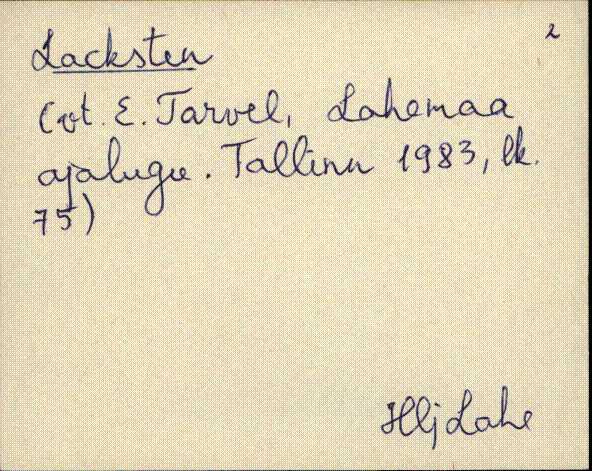 2
Lacksten
(vt. E. Tarvel, Lahemaa
ajalugu. Tallinn 1983, lk.
75)
HljLahe